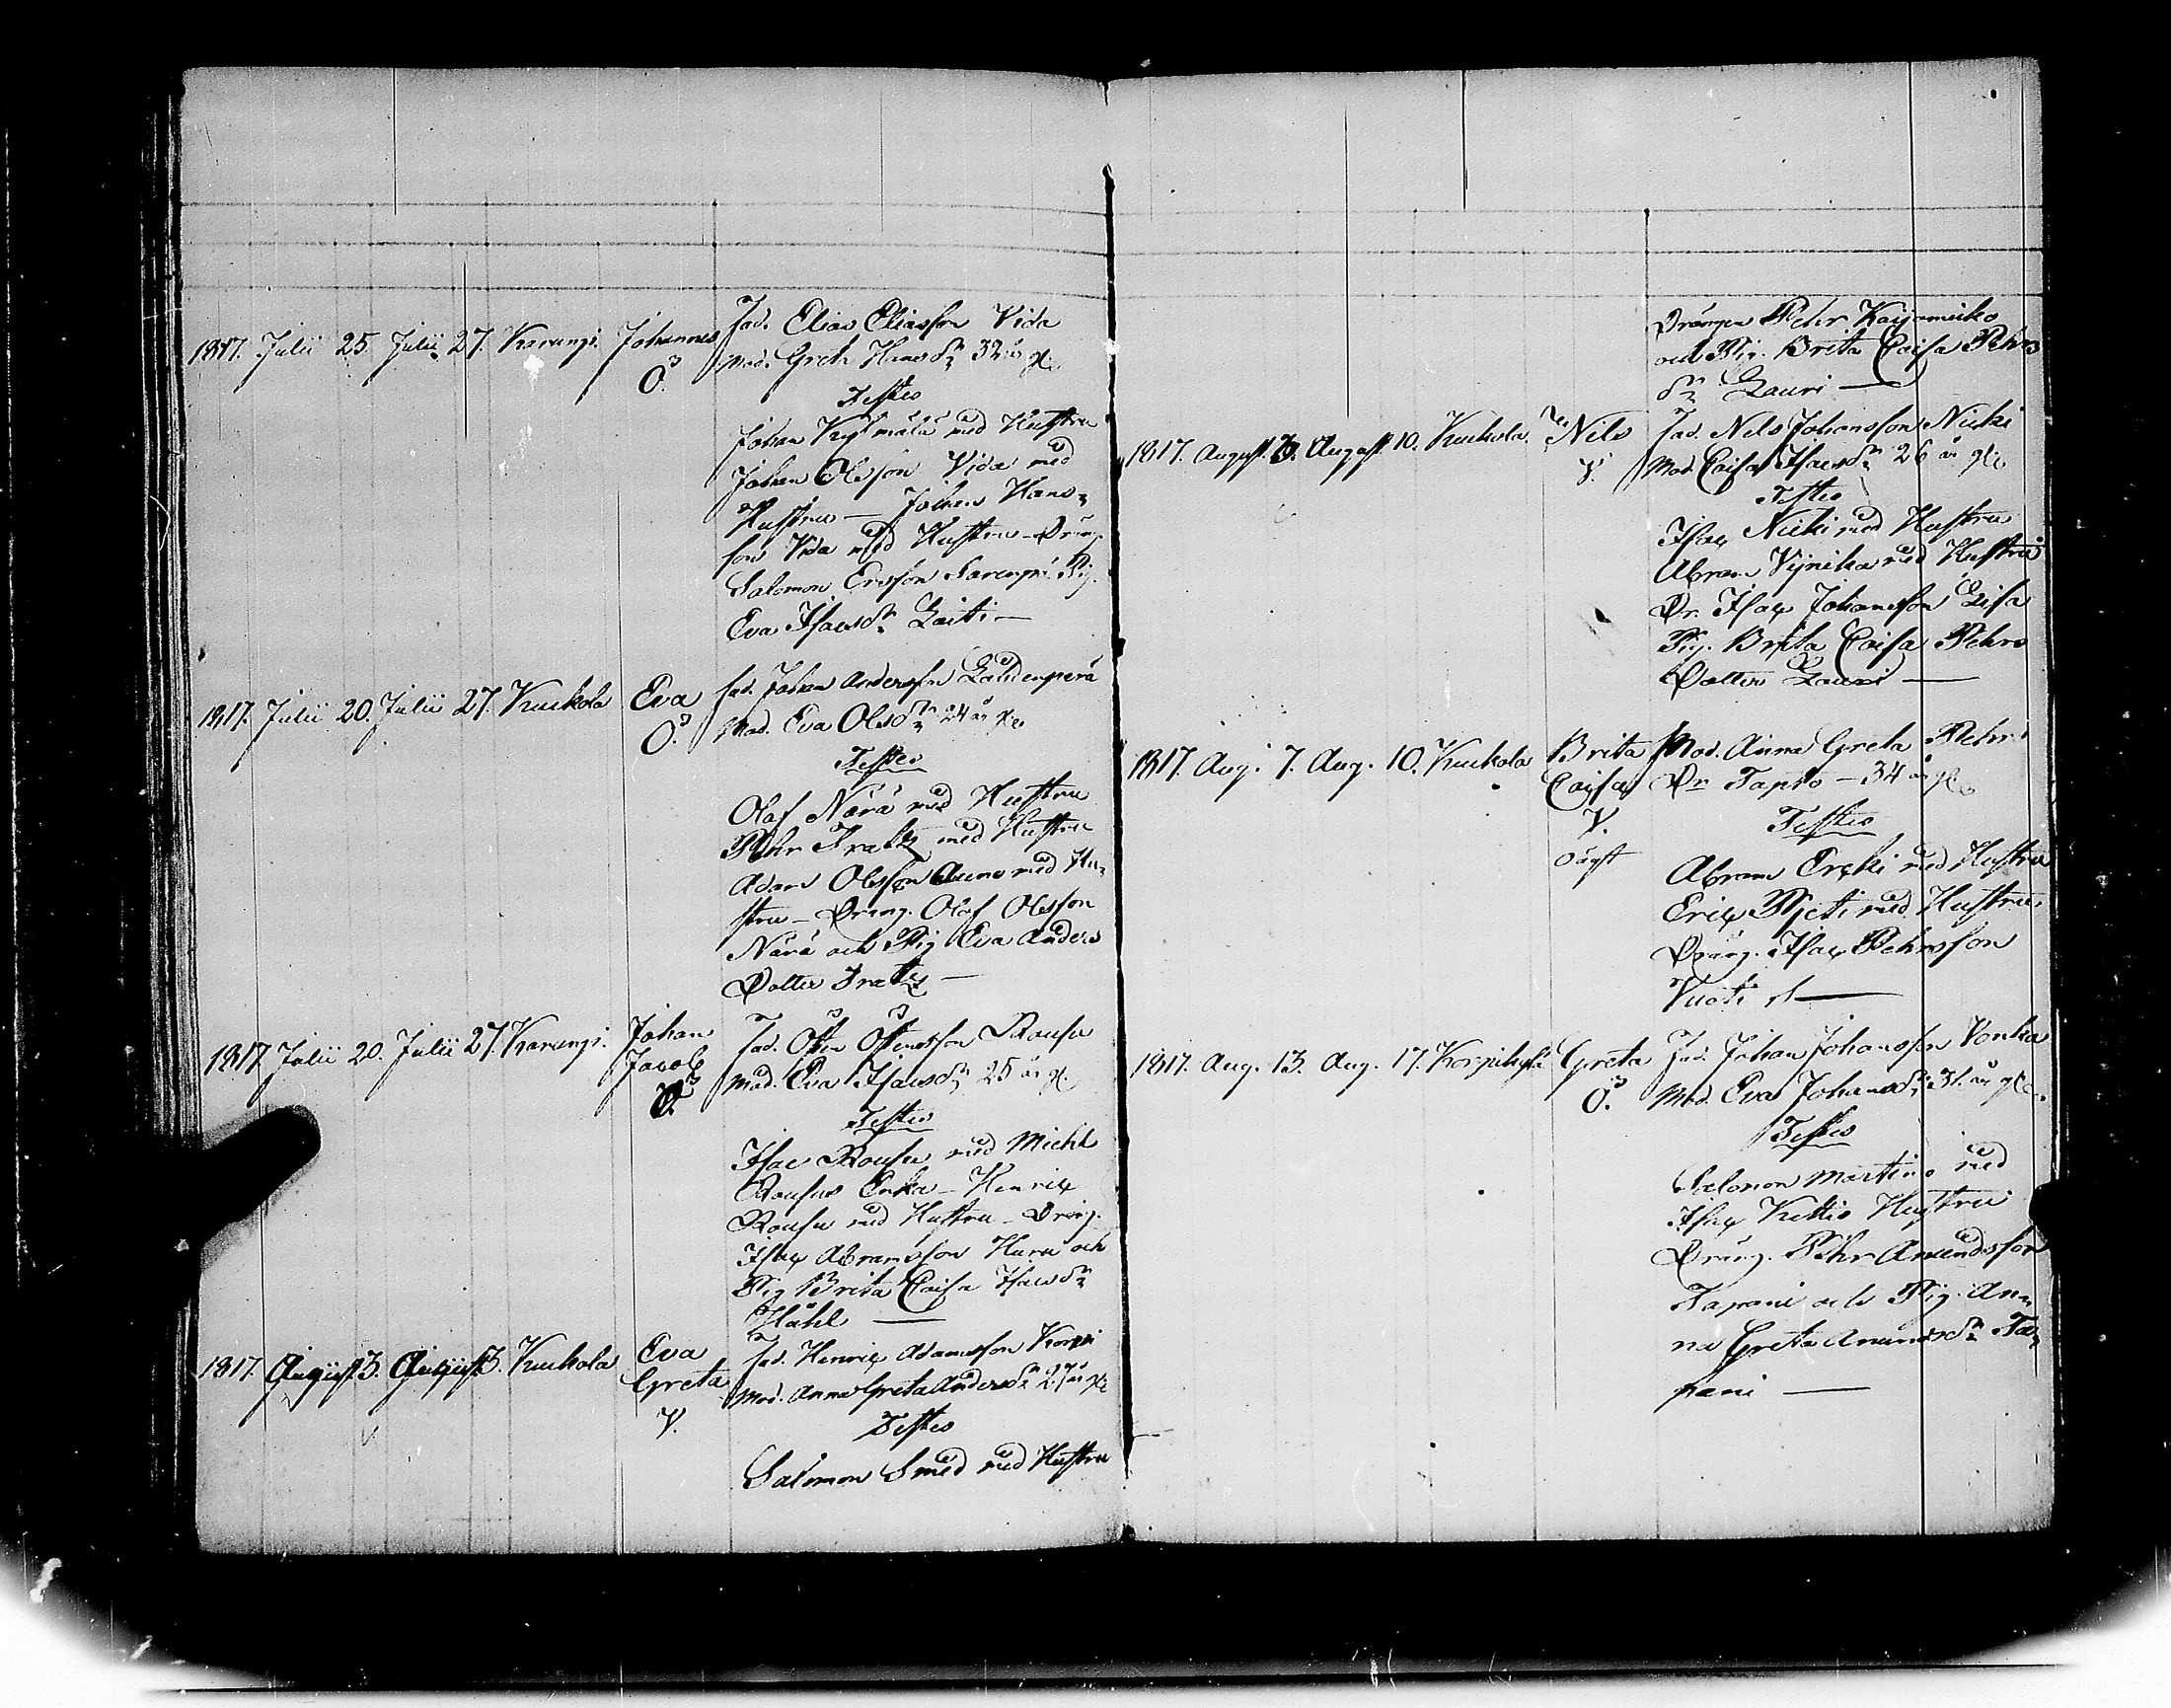 1817. Julii 25. Julii 27. Karungi. Johannes Fad. Elias Eliasson Vida
Ö. Mod. Greta Hansdr 32 år gl.
Testes
Johan Kylmälä med Hustru
Johan Olsson Vida med
Hustru — Johan Hans-
son Vida med Hustru - Dräng.
Salomon Ersson Pig.
Eva Isacsdr Laiti —
1817. Julii 20. Julii 27. Kuckola Eva Fad. Johan Andersson Laudenperä
Ö. Mod. Eva Olsdr 24 år gl.
Testes
Olaf Närä med Hustru
Pehr med Hustru
Adam Olsson Aune med Hu-
stru - Dräng. Olaf Olsson
Närä och Pig Eva Anders
Dotter —
1817 Julii 20. Julii 27. Karungi. Johan Fad. Östen Östensson Rousu
Jacob Mod. Eva Isacsdr 25 år gl.
Ö.
Testes
Isac Rousu med Michl
Rousus Enka - Henric
Rousu med Hustru - Dräng.
Isac Abramsson Huru och
Pig Brita Caisa Isacsdr
—
1817. August 3. August 3. Kuckola Eva Fad. Henric Adamsson Korpi
Greta Mod. Anna Greta Andersdr 27 år gl
V.
Testes
Salomon Smed med Hustru
Drängen Pehr
och Pig. Brita Caisa Pehrs
dr Lauri —
1817. August. 3. August. 10. Kuckola. Nils Fad. Nils Johansson Nicki
V. Mod. Caisa Isacsdr 26 år gl.
Testes
Isac Nicki med Hustru
Abram Vijnika med Hustru
Dr. Isac Johansson Lisa
Pig. Brita Caisa Pehrs
Dotter Lauri —
1817. Aug. 7. Aug. 10. Kuckola Brita Mod. Anna Greta Pehrs
Caisa Dr Tapio - 34 år gl.
V.
oägt
Testes
Abram Erkki med Hustru
Eric Pjeti med Hustru
Dräng. Isac Pehrsson
—
1817. Aug. 13. Aug. 17. Korpikylä Greta Fad. Johan Johansson Vonka
Ö. Mod. Eva Johansdr 31. år gl.
Testes
Salomon Martins med
Isac Kettis Hustru
Dräng. Pehr Amundsson
Tapani och Pig. An-
na Greta Amundsdr Ta-
pani —